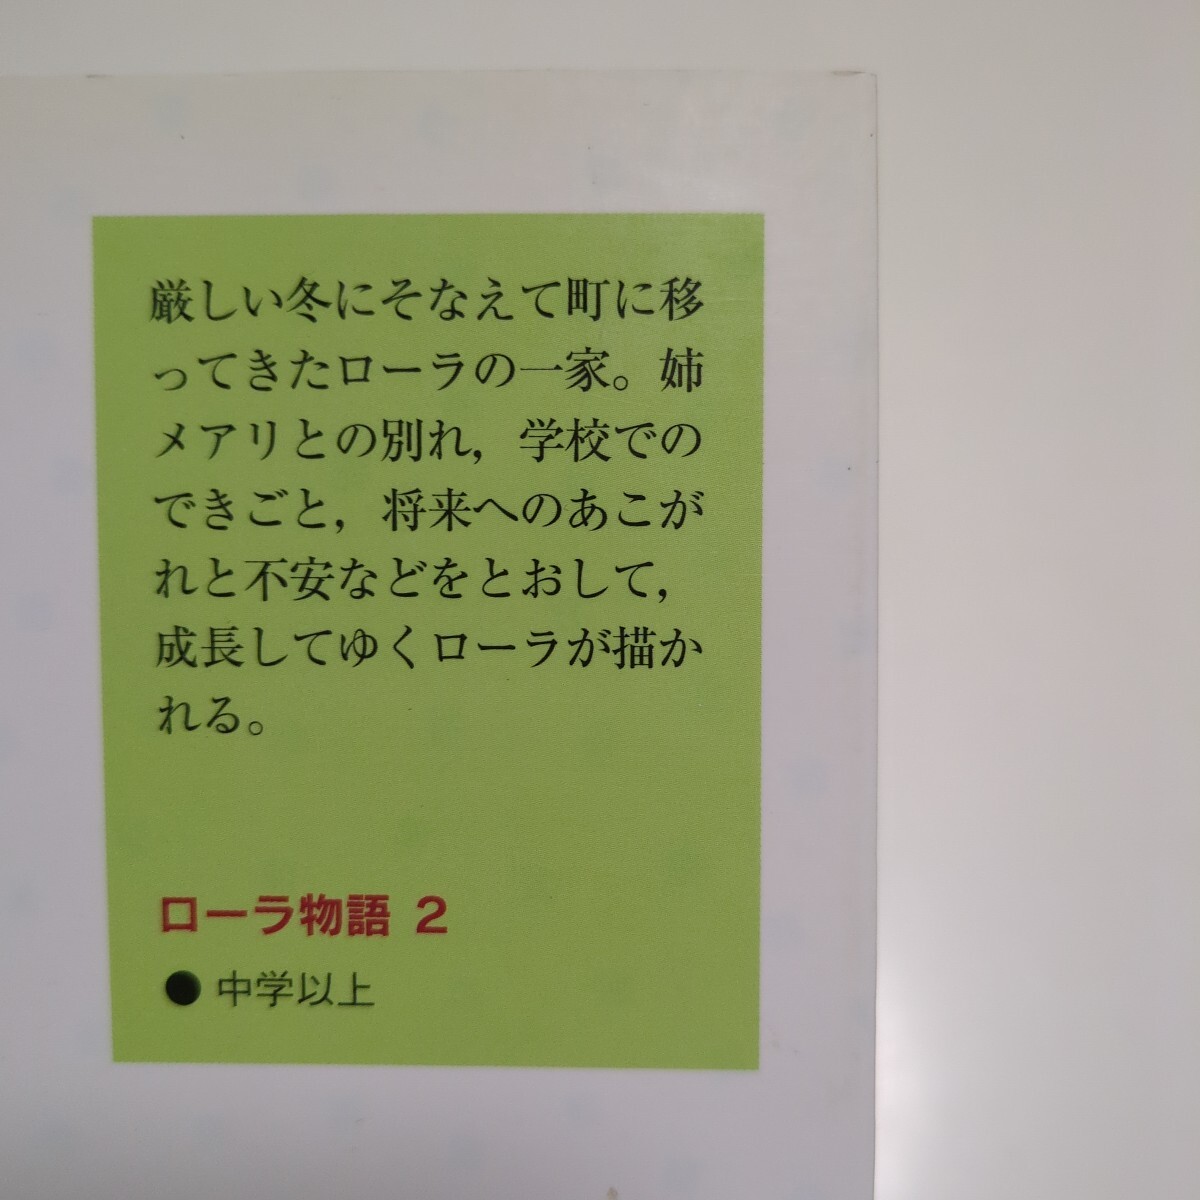 厳しい冬にそなえて町に移
ってきたローラの一家。姉
メアリとの別れ，学校での
できごと，将来へのあこが
れと不安などをとおして，
成長してゆくローラが描か
れる。
ローラ物語 2
● 中学以上